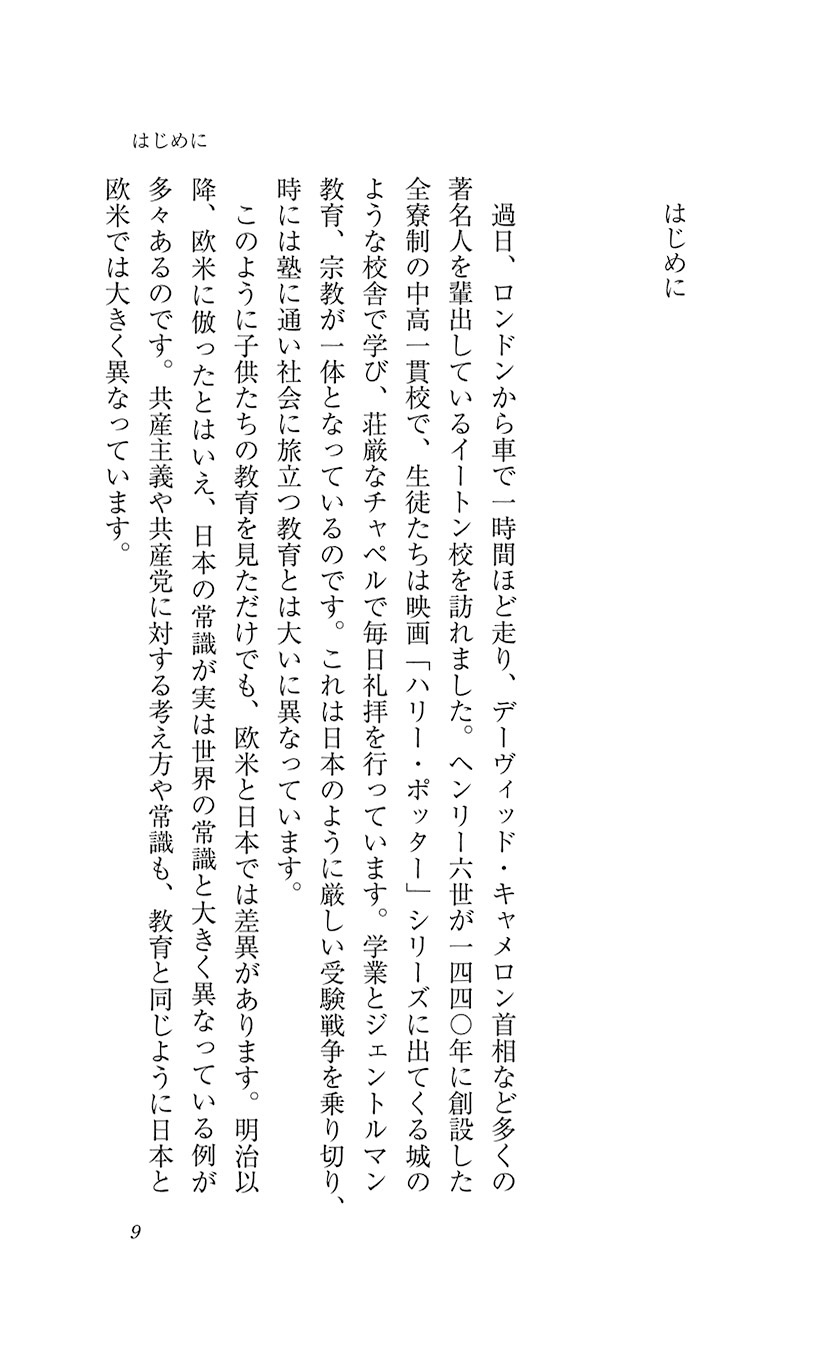 はじめに
はじめに
過日、ロンドンから車で一時間ほど走り、デーヴィッド・キャメロン首相など多くの
著名人を輩出しているイートン校を訪れました。ヘンリー六世が一四四〇年に創設した
全寮制の中高一貫校で、生徒たちは映画「ハリー・ポッター」シリーズに出てくる城の
ような校舎で学び、荘厳なチャペルで毎日礼拝を行っています。学業とジェントルマン
教育、宗教が一体となっているのです。これは日本のように厳しい受験戦争を乗り切り、
時には塾に通い社会に旅立つ教育とは大いに異なっています。
このように子供たちの教育を見ただけでも、欧米と日本では差異があります。明治以
降、欧米に倣ったとはいえ、日本の常識が実は世界の常識と大きく異なっている例が
多々あるのです。共産主義や共産党に対する考え方や常識も、教育と同じように日本と
欧米では大きく異なっています。
9